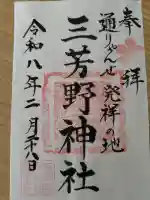 奉拝
通りゃんせ発祥の地
三芳野神社
令和八年二月廿八日